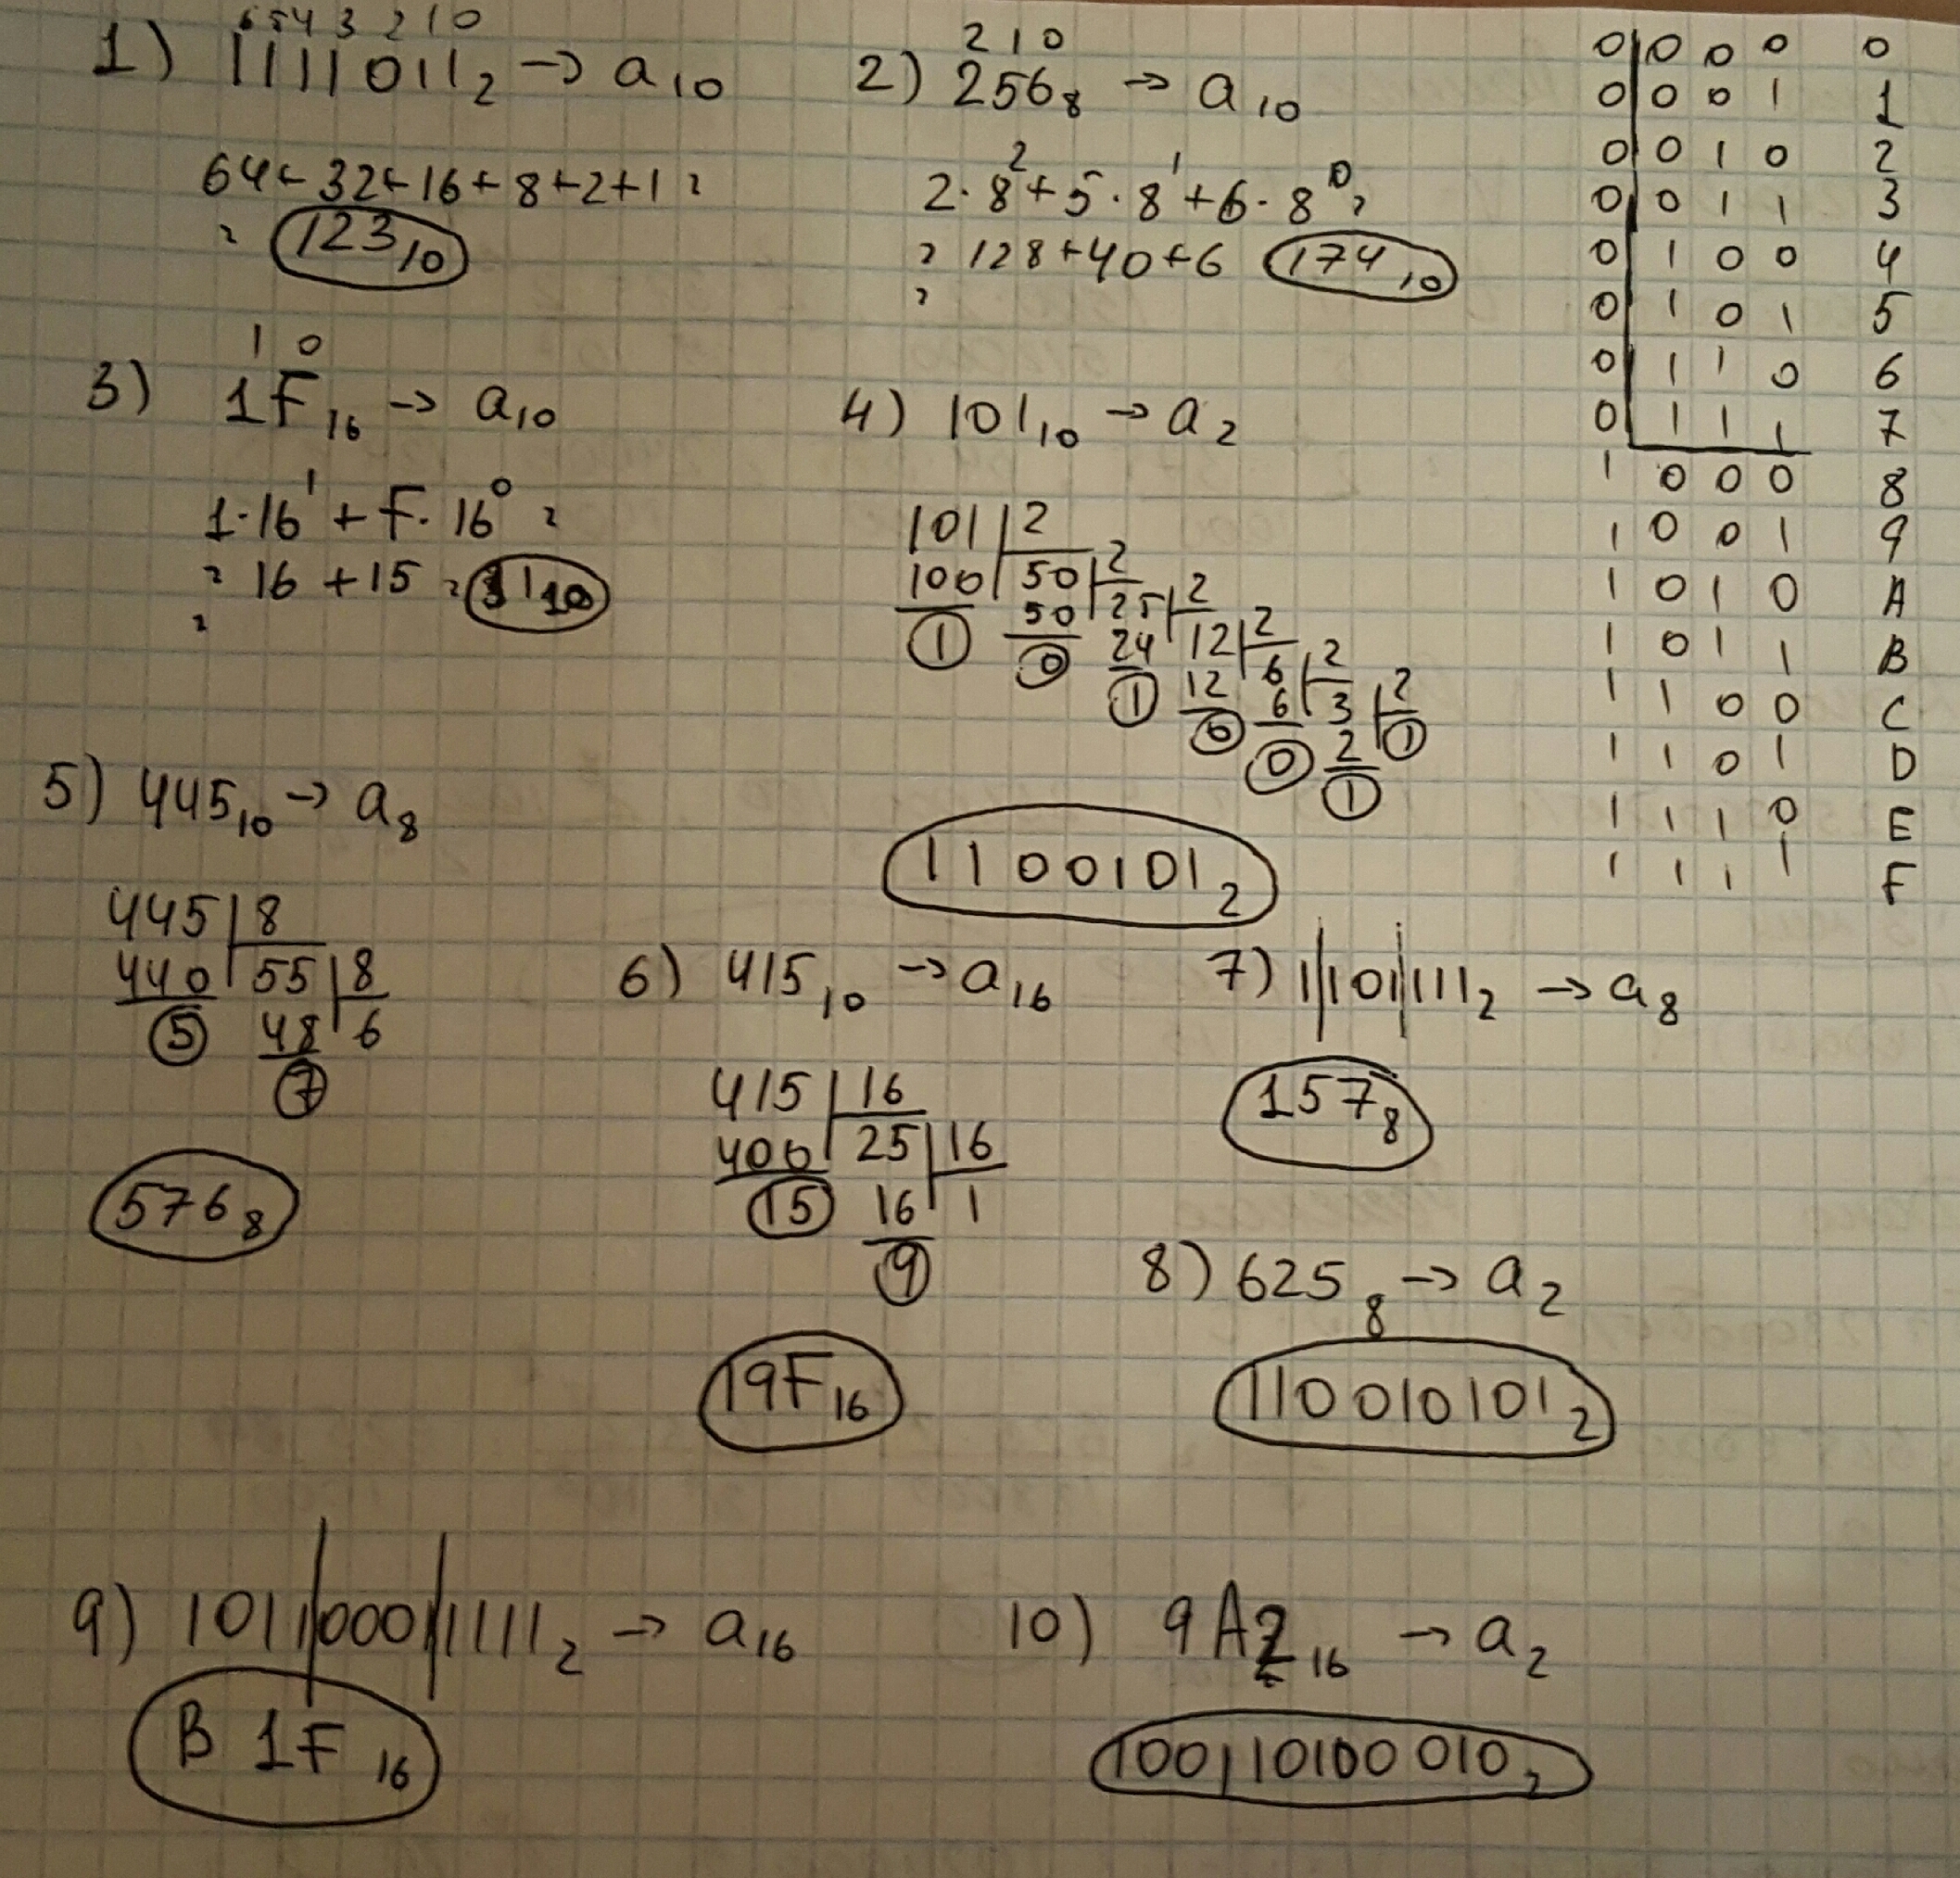 6 5 4 3 2 1 0
1) 1111011₂ → a₁₀
64 + 32 + 16 + 8 + 2 + 1 =
= 123₁₀
2 1 0
2) 256₈ → a₁₀
2·8² + 5·8¹ + 6·8⁰ =
= 128 + 40 + 6
=
174₁₀
1 0
3) 1F₁₆ → a₁₀
1·16¹ + F·16⁰ =
= 16 + 15 = 31₁₀
=
4) 101₁₀ → a₂
101 2
100 50 2
1 50 25 2
0 24 12 2
1 12 6 2
0 6 3 2
0 2 1
1
1100101₂
5) 445₁₀ → a₈
445 8
440 55 8
5 48 6
7
576₈
6) 415₁₀ → a₁₆
415 16
400 25 16
15 16 1
9
19F₁₆
7) 1|101|111₂ → a₈
157₈
8) 625₈ → a₂
110010101₂
9) 1011|0001|1111₂ → a₁₆
B1F₁₆
10) 9A2₁₆ → a₂
100110100010₂
0 0 0 0 0
0 0 0 1 1
0 0 1 0 2
0 0 1 1 3
0 1 0 0 4
0 1 0 1 5
0 1 1 0 6
0 1 1 1 7
1 0 0 0 8
1 0 0 1 9
1 0 1 0 A
1 0 1 1 B
1 1 0 0 C
1 1 0 1 D
1 1 1 0 E
1 1 1 1 F